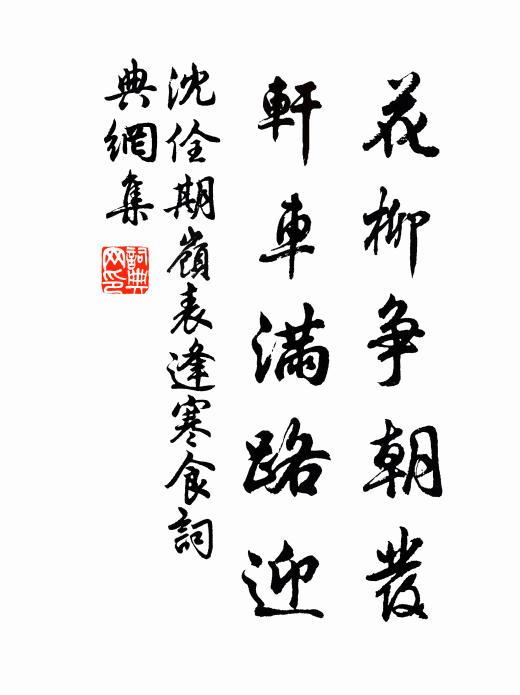 花柳争朝發
軒車滿路迎
沈佺期嶺表逢寒食詞
典網集
詞典网印